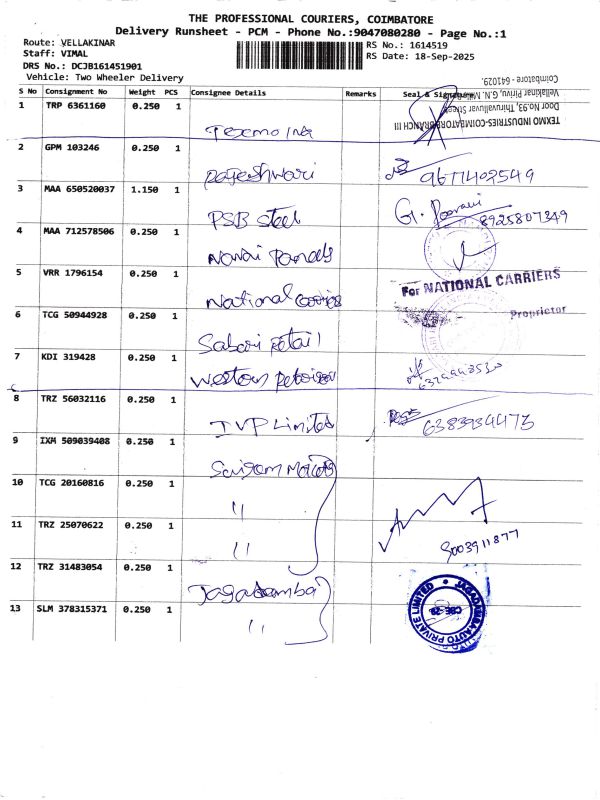 THE PROFESSIONAL COURIERS, COIMBATORE
Delivery Runsheet - PCM - Phone No.:9047080280 - Page No.:1
Route: VELLAKINAR
RS No.: 1614519
Staff: VIMAL
RS Date: 18-Sep-2025
DRS No.: DCJB161451901
Vehicle: Two Wheeler Delivery
S No Consignment No Weight PCS Consignee Details Remarks Seal &
TEXMO INDUSTRIES-COIMBATORE BRANCH III
Door No.93, Thiruvalluvar Street
Vellakinar Pirivu, G.N. Mills
Coimbatore - 641029.
1 TRP 6361160 0.250 1 Texmo Ind
2 GPM 103246 0.250 1 Rajeshwari 9677402549
3 MAA 650520037 1.150 1 PSB Steel G. Poorani 8925807349
4 MAA 712578506 0.250 1
5 VRR 1796154 0.250 1 National Carriers For NATIONAL CARRIERS
Proprietor
6 TCG 50944928 0.250 1 Sabari retail
7 KDI 319428 0.250 1 Western
8 TRZ 56032116 0.250 1 IVP Limited 6383934473
9 IXM 509039408 0.250 1 Sairam Motors
10 TCG 20160816 0.250 1 "
11 TRZ 25070622 0.250 1 " 8003911877
12 TRZ 31483054 0.250 1 Jagadambai
13 SLM 378315371 0.250 1 "
JAGADAMBAA AUTO PRIVATE LIMITED
CBE-29